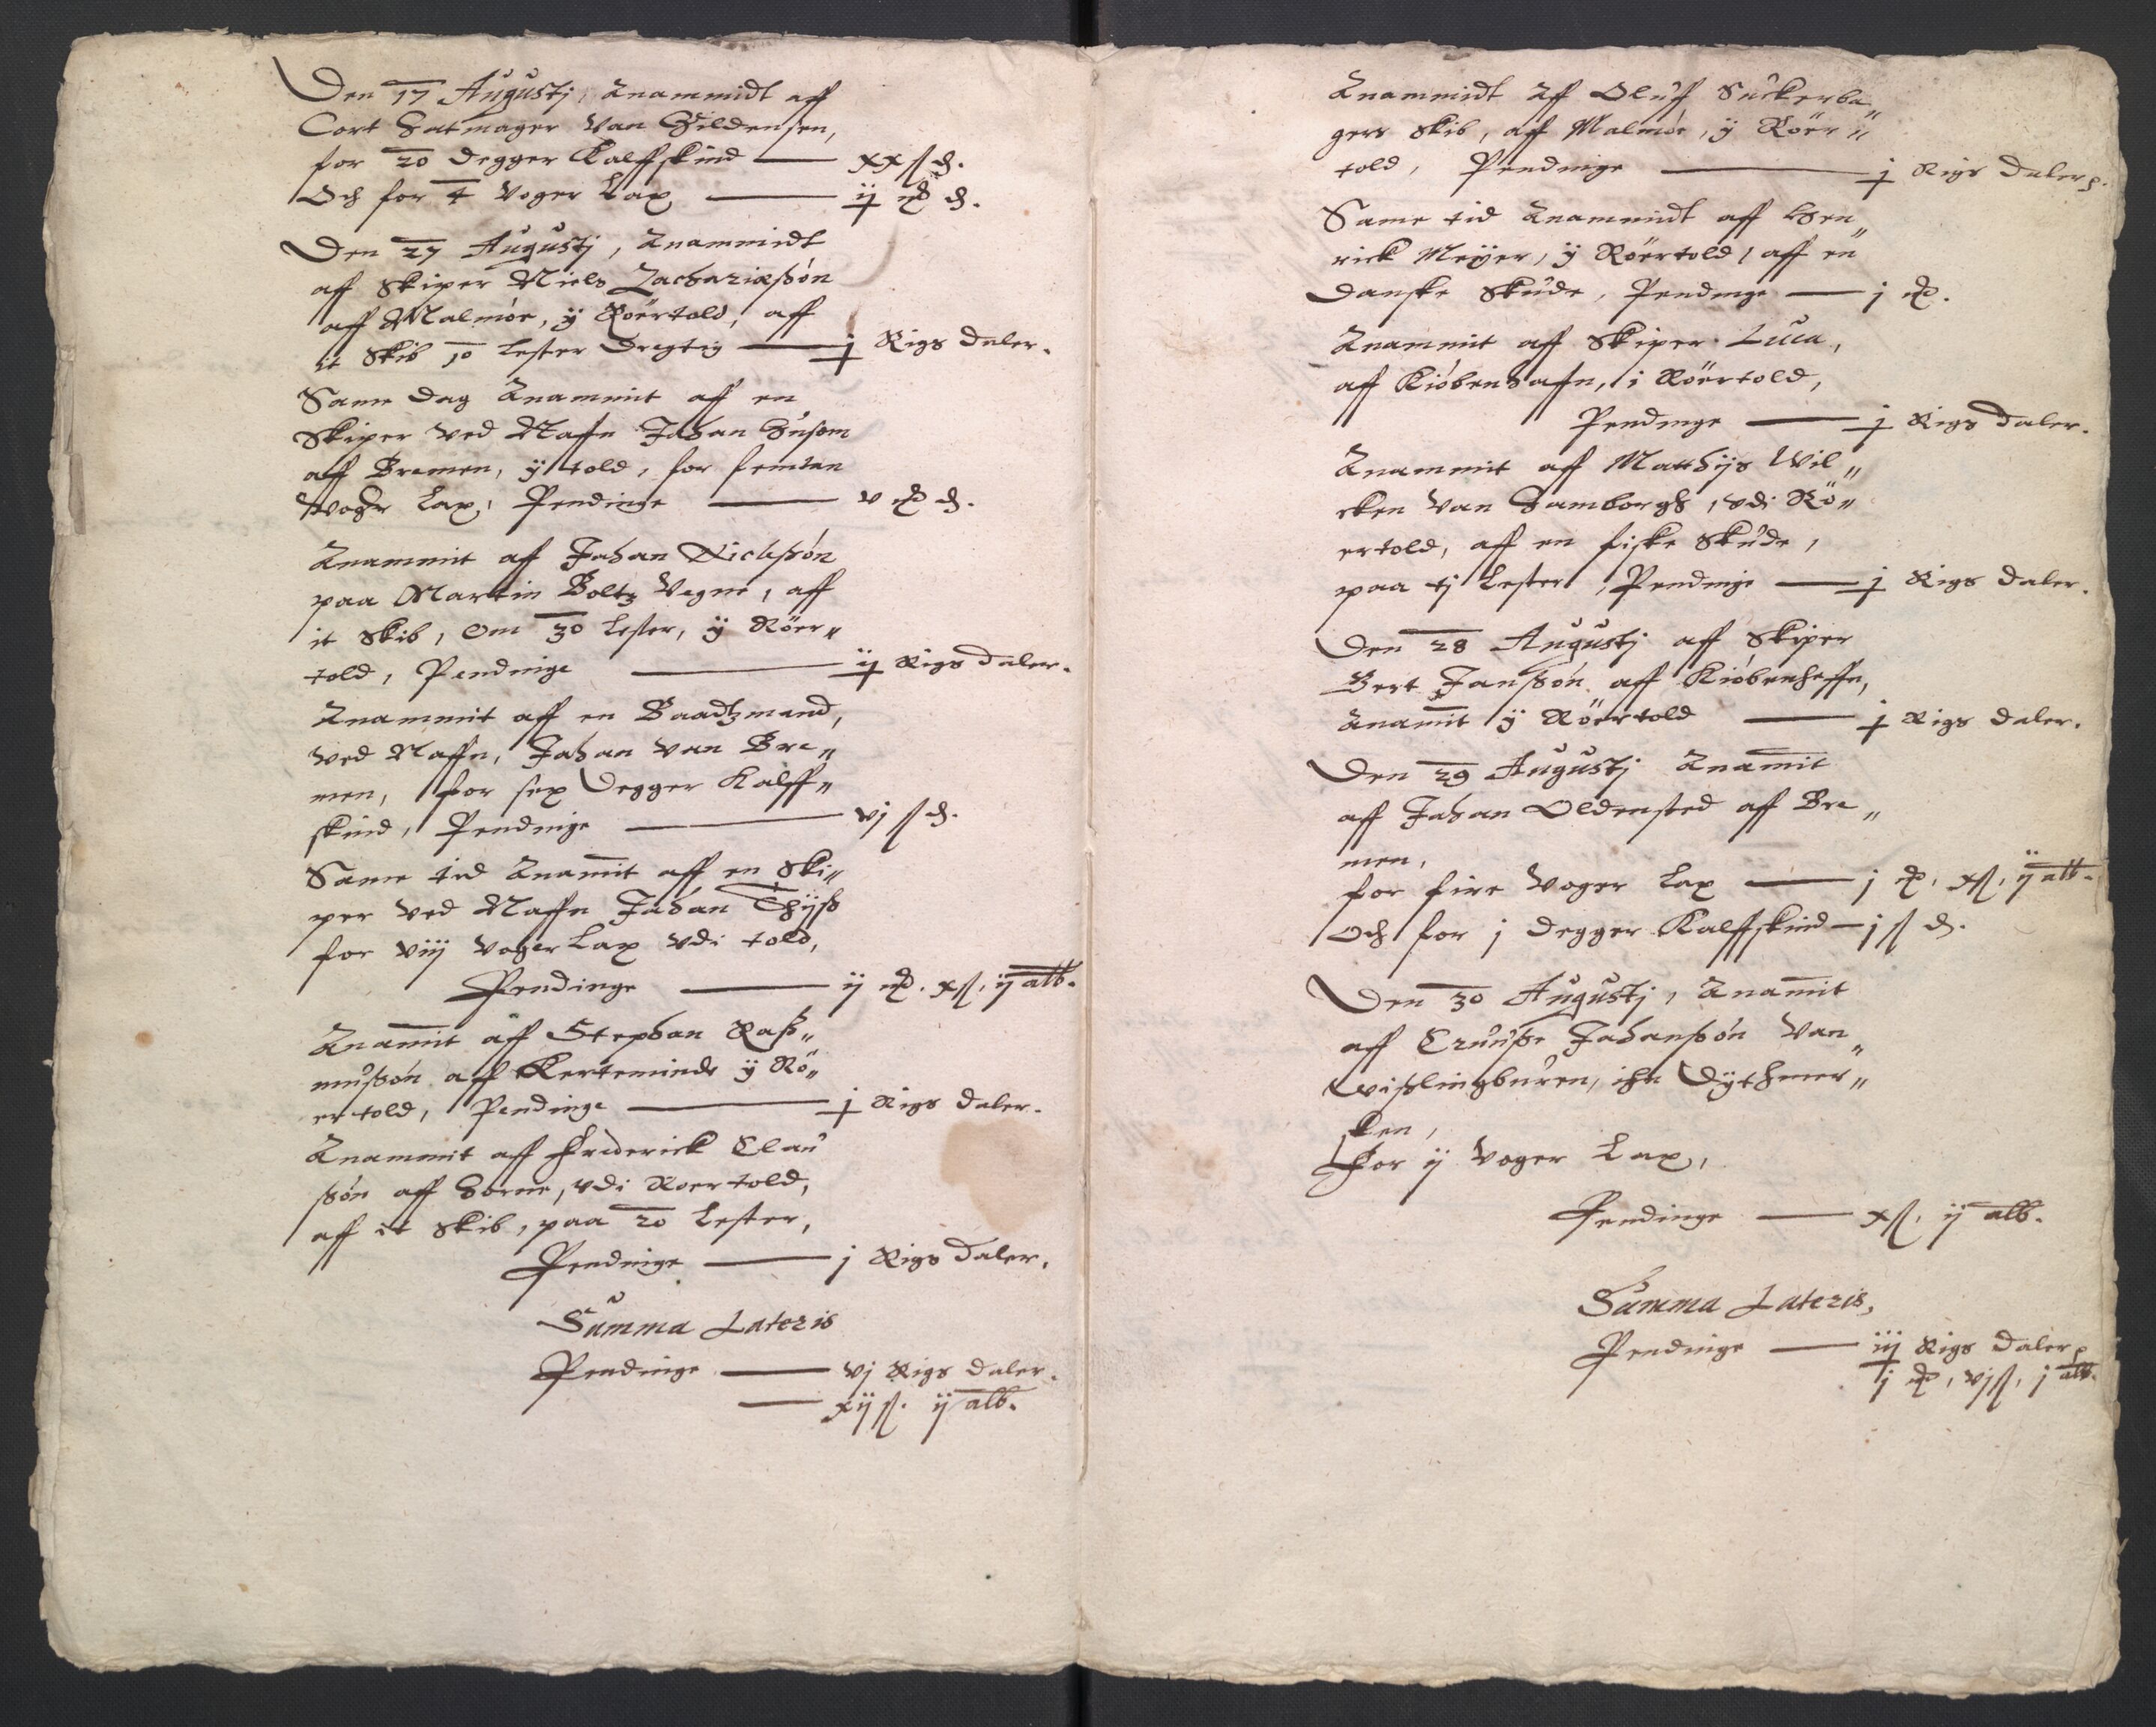 Den 17 Augustj, Anammidt aff
Cort Hatmager Van Hildensen,
for 20 Degger Kalffskind — xx ß d.
Och for 4 Voger Lax — ij mk d.
Den 27 Augustj, Anammidt
aff Skiper Niels Zachariæßón
aff Malmóe, ÿ Röertold, aff
it Skib 10 Lester Dregtig — j Rigs Daler.
Same Dag Anammit aff en
Skiper Ved Naffn Jahan Husom
aff Bremen, ÿ told, for femten
Voger Lax, Pendinge — v mk d.
Anammit aff Jahan Nielsßón
paa Martin Boltz Vegne, aff
it Skib, Om 30 Lester, ÿ Röer„
told, Pendinge — ij Rigs Daler.
Anammit aff en Baadtzmand,
Ved Naffn, Jahan Van Bre„
men, for sex Degger Kalff„
skind, Pendinge — vj ß d.
Same tid Anamit aff en Ski„
per Ved Naffn Jahan Thÿß
for viij Voger Lax vdi told,
Pendinge — ij mk. x ß, ij alb.
Anamit aff Stephan Raß„
mußón aff Kerteminde ÿ Rö„
ertold, Pendinge — j Rigs Daler.
Anammit aff Friderick Clau
ßón aff Horne, vdi Roertold,
aff it Skib, paa 20 Lester,
Pendinge — j Rigs Daler.
Summa Lateris
Pendinge — vj Rigs Daler.
— xij ß. ij alb.
Anammidt Aff Oluff Suckerba„
gers Skib, aff Malmóe, ÿ Röer„
told, Pendinge — j Rigs Daler
Same tid Anammidt aff Hen„
rick Meÿer, ÿ Röertold, aff en
Danske Skude, Pendinge — j mk.
Anammit aff Skiper Luca,
aff Kióbenhaffn, i Röertold,
Pendinge — j Rigs Daler.
Anammit aff Matthÿs Wil„
cken Van Hamborgh, vdi Rö„
ertold, aff en fiske Skude,
paa Lester, Pendinge — j Rigs Daler.
Den 28 Augustj aff Skiper
Bert Janßón aff Kióbenheffn,
Anamit ÿ Röertold — j Rigs Daler.
Den 29 Augustj Anamit
aff Jahan Oldensted aff Bre„
men,
for fire Voger Lax — j mk, x ß, ij alb.
Och for j Degger Kalffskind — j ß d.
Den 30 Augustj, Anamit
aff Cruuße Jahanßón Van„
Wißlingburen, ihn Dÿthmer„
sken,
For ij Voger Lax,
Pendinge — x ß, ij alb.
Summa Lateris,
Pendinge — iij Rigs Daler
j mk, vj ß, j alb.